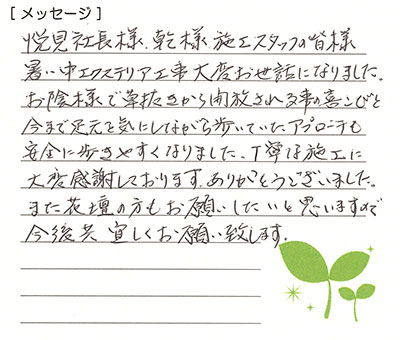 [メッセージ]
悦見社長様、乾様 施工スタッフの皆様
暑い中エクステリア工事大変お世話になりました。
お陰様で草抜きから開放される事の喜こびと
今まで足元を気にしながら歩いていたアプローチも
安全に歩きやすくなりました、丁寧な施工に
大変感謝しております。ありがとうございました。
また花壇の方もお願いしたいと思いますので
今後共 宜しくお願い致します。